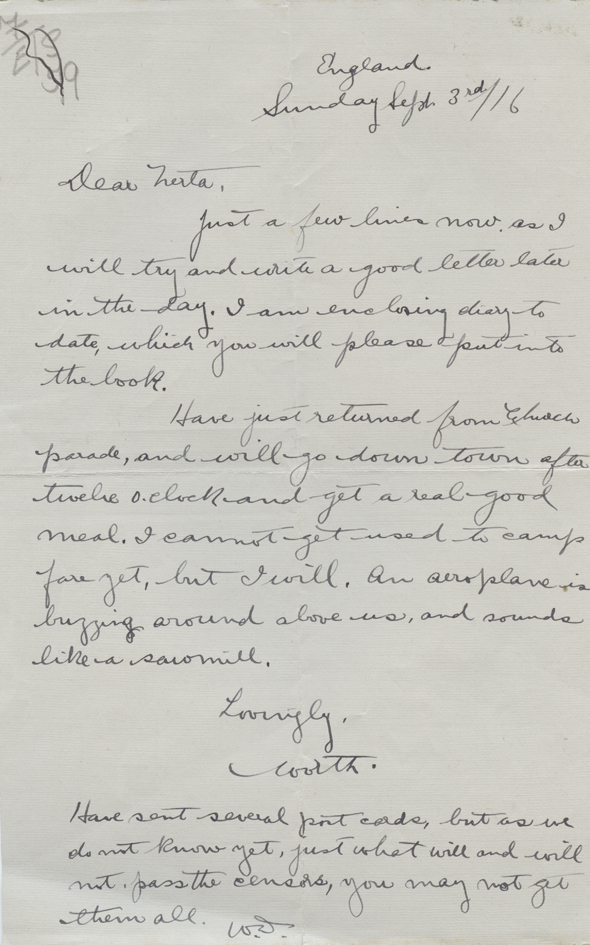 England.
Sunday Sept. 3rd/16
Dear Nerta,
Just a few lines now, as I
will try and write a good letter later
in the day. I am enclosing diary to
date, which you will please put into
the book.
Have just returned from Church
parade, and will go down town after
twelve o.clock and get a real good
meal. I cannot get used to camp
fare yet, but I will. An aeroplane is
buzzing around above us, and sounds
like a sawmill.
Lovingly,
Worth.
Have sent several post cards, but as we
do not know yet, just what will and will
not pass the censors, you may not get
them all. W.D.